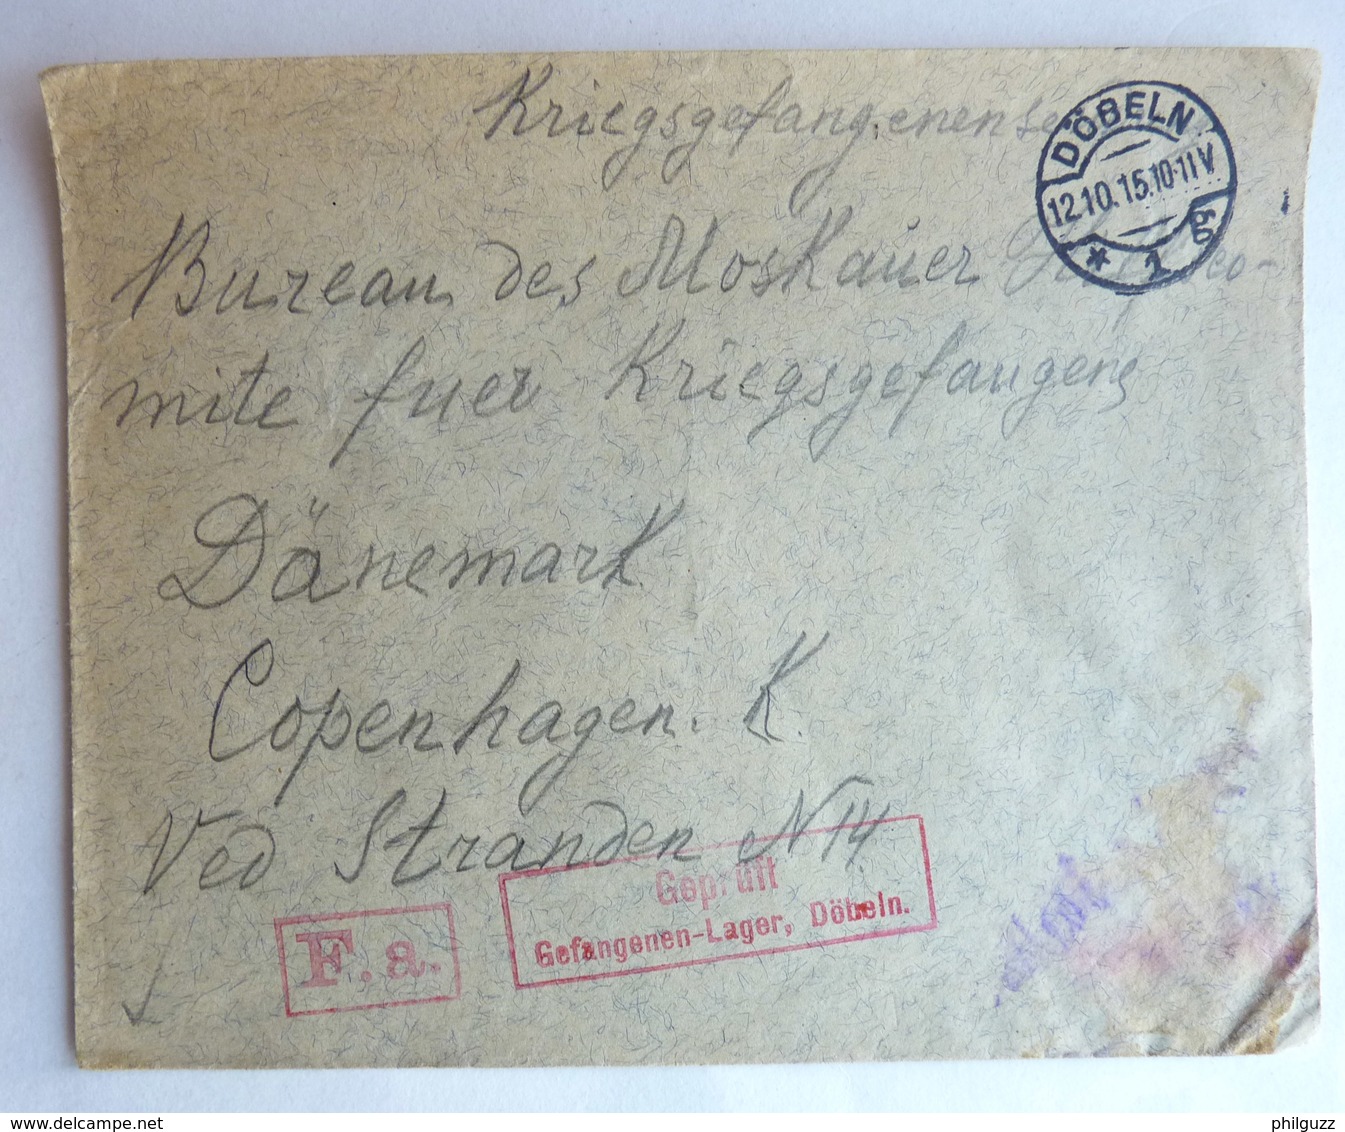 Kriegsgefangenense
DÖBELN
12.10.15.10-11V
* 1 60
Bureau des Moskauer eo-
mite fuer Kriegsgefangene
Dänemark
Copenhagen. K.
Ved Stranden N 14
Geprüft
Gefangenen-Lager, Döbeln.
F. a.
philguzz